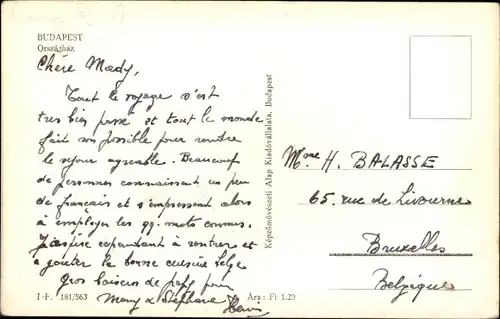 BUDAPEST
Országház
Chère Mady,
Tout le voyage s'est
très bien passé et tout le monde
fait son possible pour rendre
le séjour agréable. Beaucoup
de personnes connaissent un peu
de français et s'empressent alors
à employer les qq. mots connus.
J'aspire cependant à rentrer et
à goûter la bonne cuisine belge
Gros baisers de papy pour
Many & Stéphane
I.F. 181/563
Ára: Ft 1.20
Képzőművészeti Alap Kiadóvállalata, Budapest
Mme H. BALASSE
65, rue de Livourne
Bruxelles
Belgique